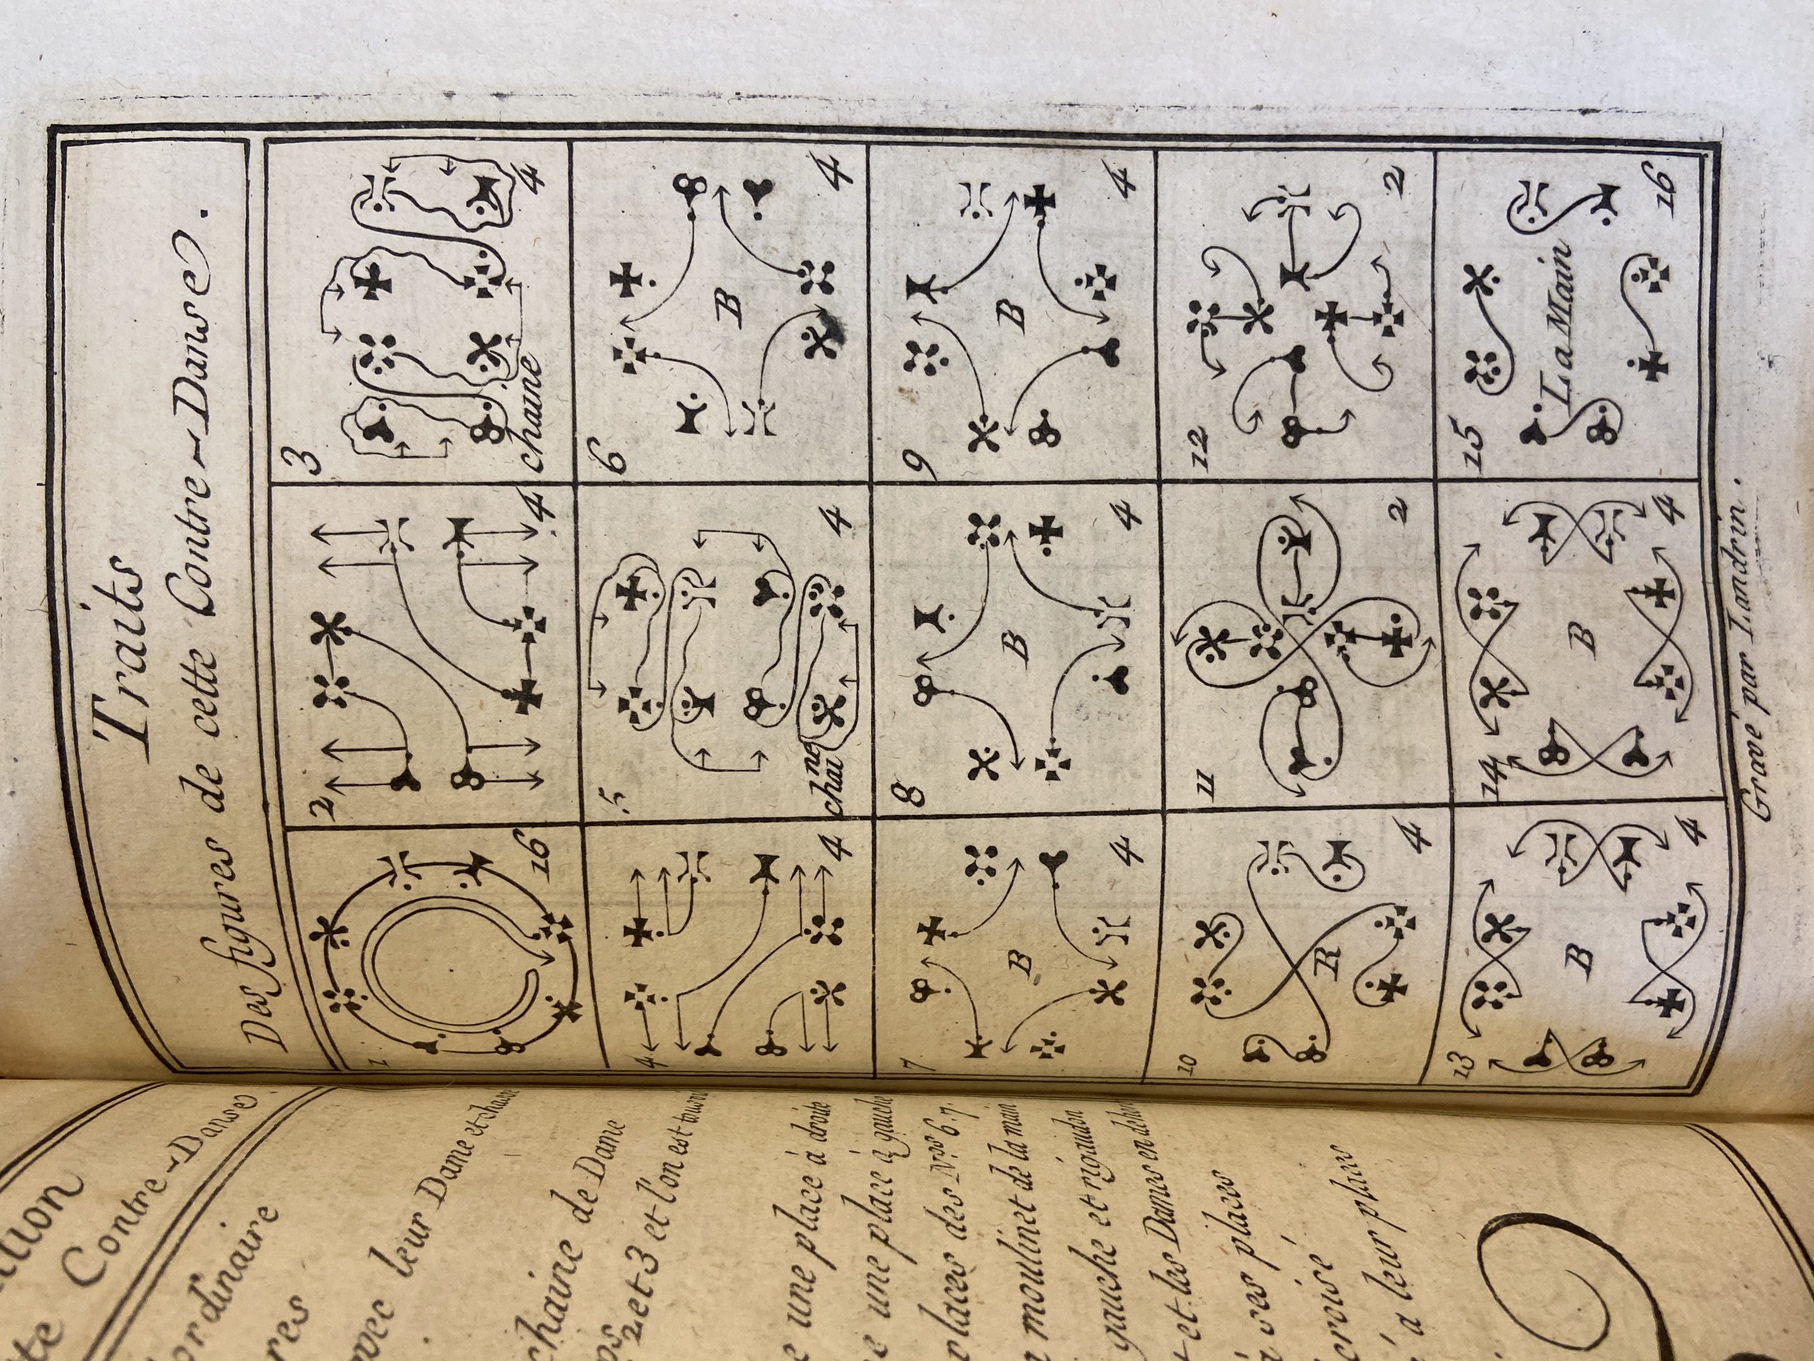 Traits
Des figures de cette Contre-Danse.
1 16
2 4
3 chaine 4
4 4
5 chaîne 4
6 B 4
7 B 4
8 B 4
9 B 4
10 R 4
11 2
12 2
13 B 4
14 B 4
15 La Main 16
Gravé par Landrin.
Contre-Danse
ordinaire
leur Dame et chasse
chaine de Dame
2 et 3 et l'on est
une place à droite
une place à gauche
places des Nos. 6 7.
moulinet de la main
gauche et rigaudon
et les Dames en dehors
à ses places
croisé
à leur places